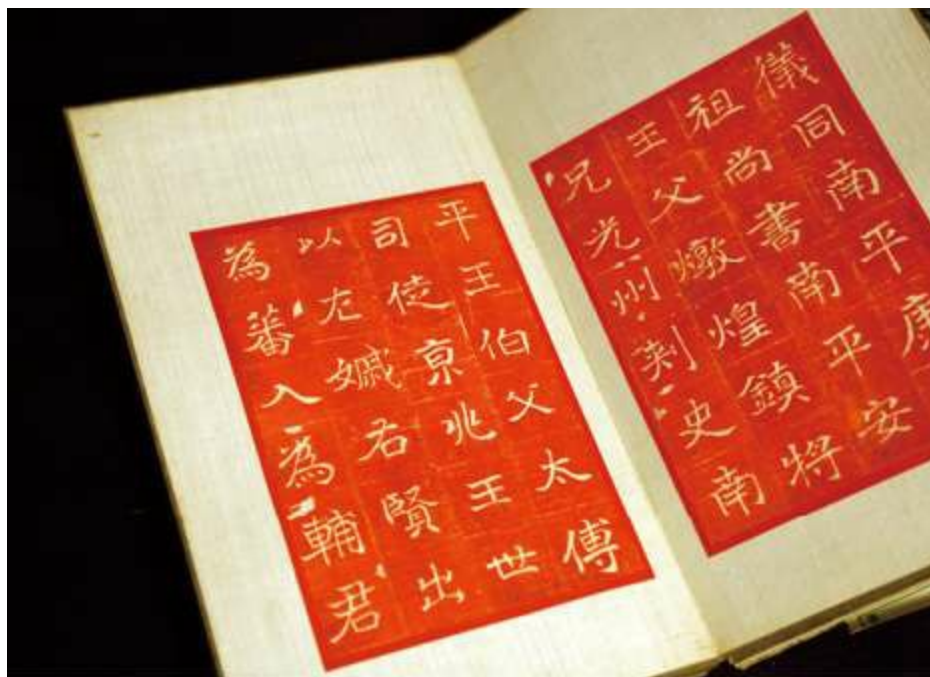 儀同南平康
祖尚書南平安
王父燉煌鎮将
兄光州刺史南
平王伯父太傅
司徒京兆王世
以左右賢出
為蕃入為輔君